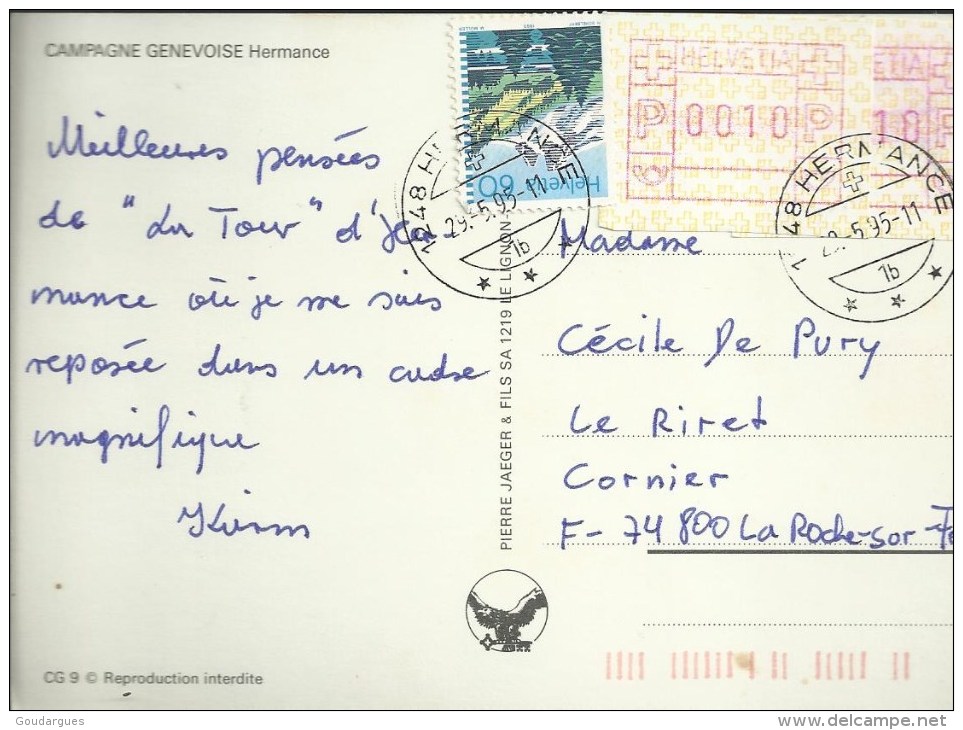 CAMPAGNE GENEVOISE Hermance
Meilleures pensées
de "La Tour" d'Her-
mance où je me suis
reposée dans un cadre
magnifique
CG 9 © Reproduction interdite
PIERRE JAEGER & FILS SA 1219 LE LIGNON
Helvetia 60
HELVETIA
P 0010 P
ETIA
10 P
1248 HERMANCE
29.-5.95-11
1b
1248 HERMANCE
29.-5.95-11
1b
Madame
Cécile De Pury
Le Riret
Cornier
F-74 800 La Roche-sur-Fo
Goudargues
delcampe.net